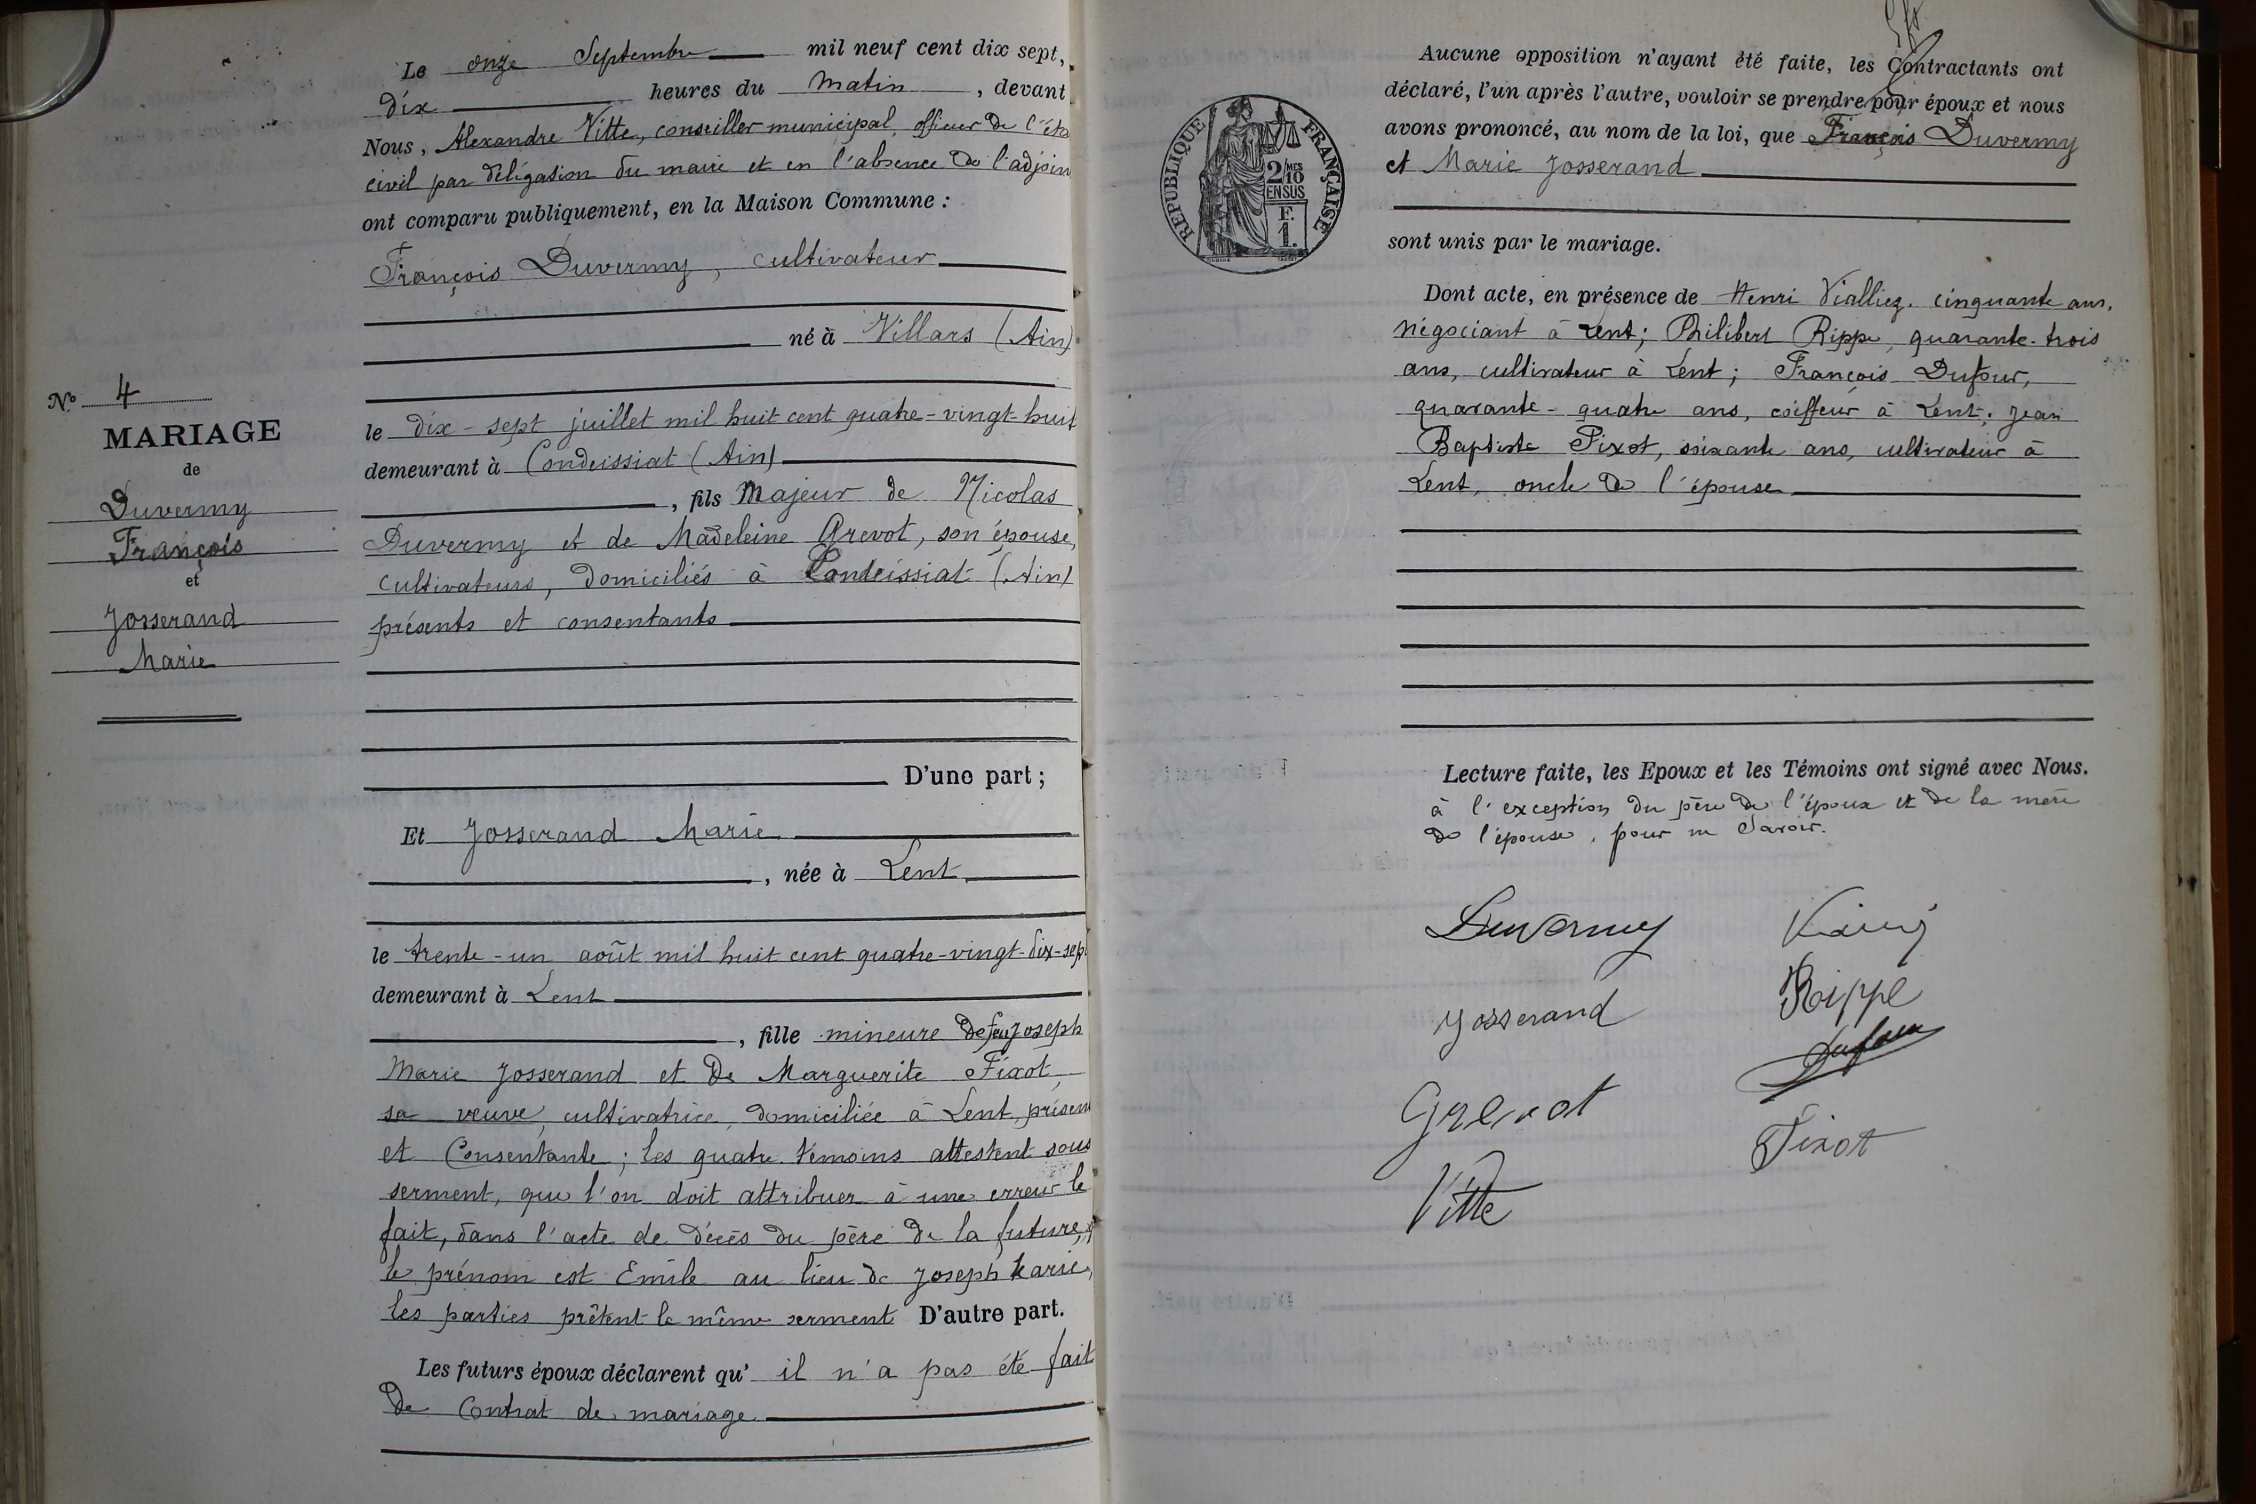 Le onze Septembre mil neuf cent dix sept,
dix heures du Matin, devant
Nous, Alexandre Vitte, conseiller municipal, officier de l'éta
civil par délégation du maire et en l'absence de l'adjoin
ont comparu publiquement, en la Maison Commune :
François Duvermy, cultivateur
né à Villars (Ain)
N° 4
MARIAGE
de
Duvermy
François
et
Josserand
Marie
le dix-sept juillet mil huit cent quatre-vingt-huit
demeurant à Condeissiat (Ain)
, fils Majeur de Nicolas
Duvermy et de Madeleine Grevot, son épouse,
cultivateurs, domiciliés à Condeissiat (Ain)
présents et consentants
D'une part ;
Et Josserand Marie
, née à Lent
le trente-un août mil huit cent quatre-vingt-dix-sep
demeurant à Lent
, fille mineure de feu Joseph
Marie Josserand et de Marguerite Fixot,
sa veuve, cultivatrice, domiciliée à Lent, présen
et Consentante ; les quatre témoins attestent sous
serment, que l'on doit attribuer à une erreur le
fait, dans l'acte de décès du père de la future,
le prénom est Emile au lieu de Joseph Marie,
les parties prêtent le même serment D'autre part.
Les futurs époux déclarent qu' il n'a pas été fait
de Contrat de mariage
RÉPUBLIQUE FRANÇAISE
2/10 MES
EN SUS
F.
1.
Aucune opposition n'ayant été faite, les Contractants ont
déclaré, l'un après l'autre, vouloir se prendre pour époux et nous
avons prononcé, au nom de la loi, que François Duvermy
et Marie Josserand
sont unis par le mariage.
Dont acte, en présence de Henri Vialliez, cinquante ans,
négociant à Lent ; Philibert Rippe, quarante-trois
ans, cultivateur à Lent ; François Dufour,
quarante-quatre ans, coiffeur à Lent ; Jean
Baptiste Fixot, soixante ans, cultivateur à
Lent, oncle de l'épouse
Lecture faite, les Epoux et les Témoins ont signé avec Nous.
à l'exception du père de l'époux et de la mère
de l'épouse, pour ne savoir.
Duvermy
Josserand
Rippe
Dufour
Grevot
Fixot
Vitte